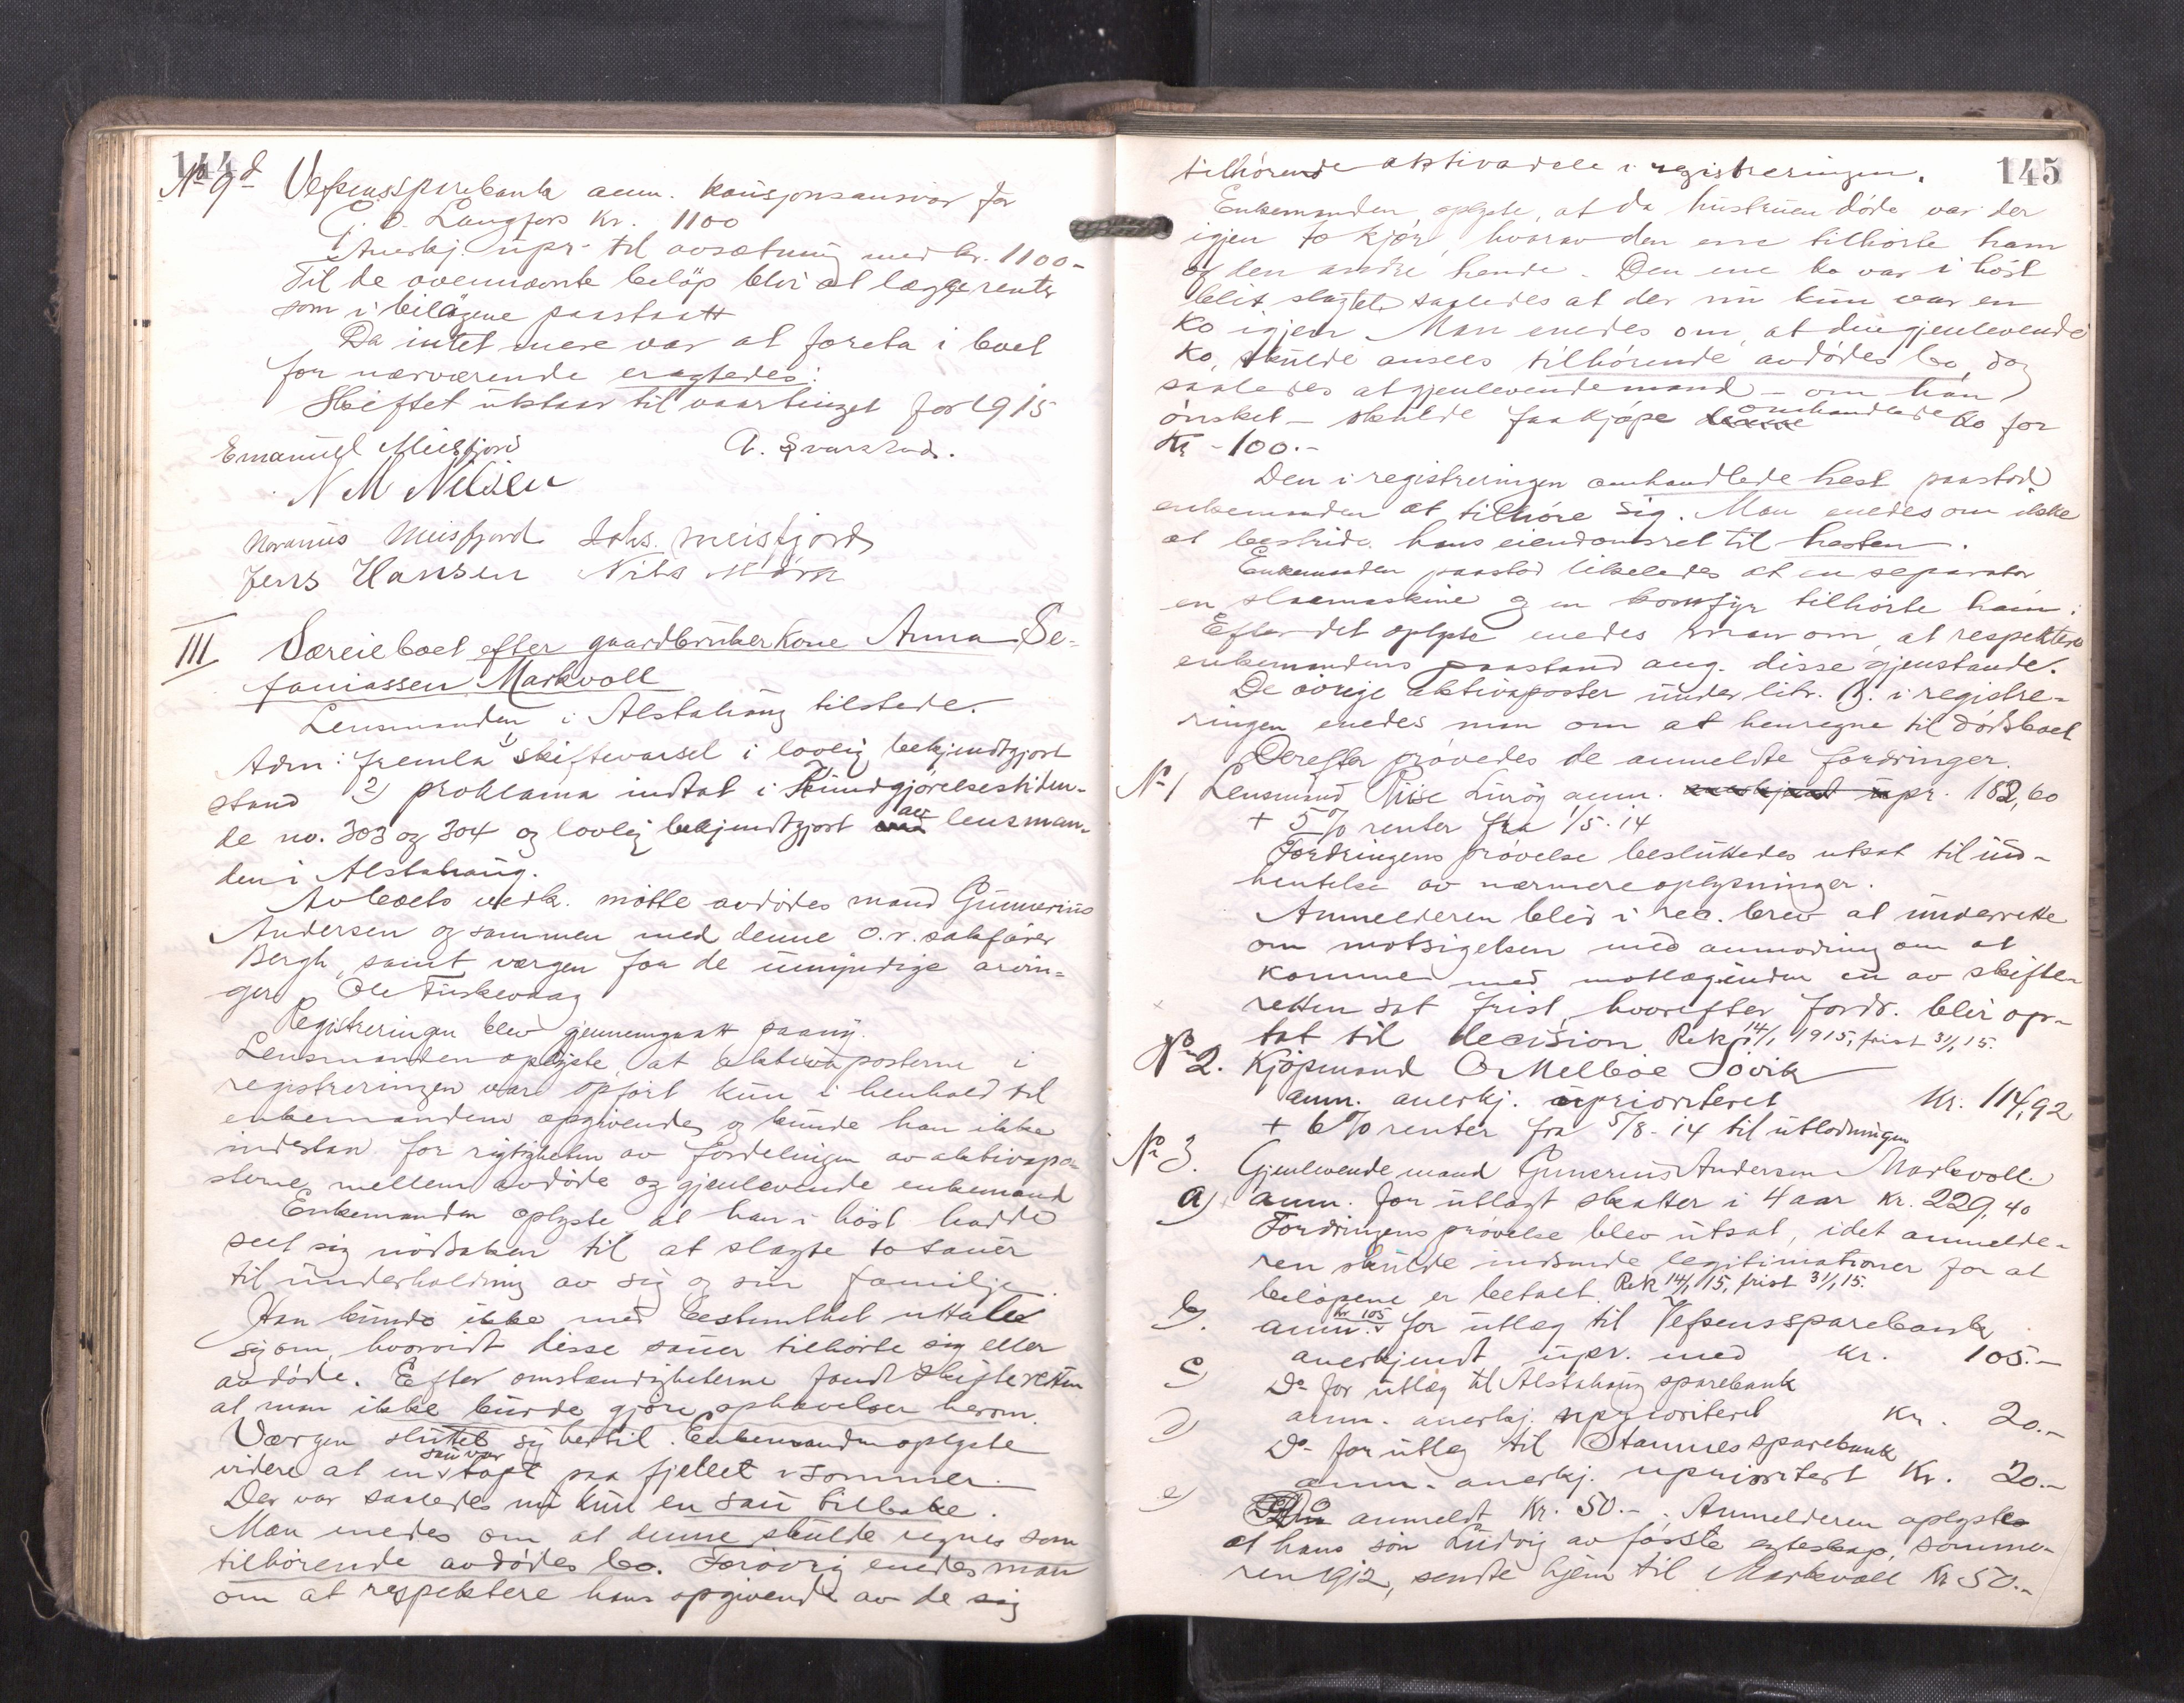 144
No 9 d Vefsenssparebank anm. kausjonsansvar for
G. O. Langfors kr. 1100
Anerkj. upr. til avsætning med kr. 1100-
Til de ovennævnte beløp blir at lægge renter
som i bilagene paastaatt
Da intet mere var at foreta i boet
for nærværende eragtedes:
Skiftet utstaar til vaartinget for 1915
Emanuel Meisfjord A. Svarstad.
N M Nilsen
Meisfjord Johs. Meisfjord
Jens Hansen Nils
III Særeieboet efter gaardbrukerkone Anna Se-
faniassen Markvoll
Lensmanden i Alstahaug tilstede.
Adm: fremla 1) skiftevarsel i lovlig bekjendtgjort
stand 2) proklama indtat i Kundgjørelsestiden-
de no. 303 og 304 og lovlig bekjendtgjort av lensman-
den i Alstahaug.
Av boets vedk. møtte avdødes mand Gunnerius
Andersen og sammen med denne o.r. sakfører
Bergh, samt vergen for de umyndige arvin-
ger Ole
Registreringen blev gjennemgaatt paany.
Lensmanden oplyste, at aktivaposterne i
registreringen var opført kun i henhold til
enkemandens opgivende og kunde han ikke
indestaa for rigtigheten av fordelingen av aktivapo-
sterne mellem avdøde og gjenlevende enkemand
Enkemanden oplyste at han i høst hadde
seet sig nødsaken til at slagte to sauer
til underholdning av sig og sin familje.
Han kunde ikke med bestemthet uttale
sig om, hvorvidt disse sauer tilhørte sig eller
avdøde. Efter omstændigheterne fandt skifteretten
at man ikke burde gjøre ophævelser herom.
Værgen sluttet sig hertil. Enkemanden oplyste
videre at en sau var tapt paa fjellet i sommer.
Der var saaledes nu kun en sau tilbake.
Man enedes om at denne skulde regnes som
tilhørende avdødes bo. Forøvrig enedes man
om at respektere hans opgivende av de sig
145
tilhørende aktivadele i registreringen.
Enkemanden, oplyste, at da hustruen døde var der
igjen to kjør, hvorav den ene tilhørte ham
og den andre hende. Den ene ko var i høst
blit slagtet saaledes at der nu kun var en
ko igjen. Man enedes om, at den gjenlevende
ko, skulde ansees tilhørende avdødes bo, dog
saaledes at gjenlevende mand - om han
ønsket - skulde faa kjøpe omhandlede ko for
Kr - 100.-
Den i registreringen omhandlede hest paastod
enkemanden at tilhøre sig. Man enedes om ikke
at bestride hans eiendomsret til hesten.
Enkemanden paastod likeledes at en separator
en slaamaskine og en komfyr tilhørte ham.
Efter det oplyste enedes man om, at respektere
enkemandens paastand ang. disse gjenstande.
De øvrige aktivaposter under litr. B. i registre-
ringen enedes man om at henregne til dødsboet
Derefter prøvedes de anmeldte fordringer.
No 1 Lensmand Riise Lurøy anm. upr. 182,60
+ 5% renter fra 1/5-14
Fordringens prøvelse besluttedes utsat til ind-
hentelse av nærmere oplysninger.
Anmelderen blir i rec. brev at underrette
om motsigelsen med anmodning om at
komme med motlæg inden en av skifte-
retten sat frist, hvorefter fordr. blir op-
tat til decision Rek 14/1 1915, frist 31/1 15.
No 2. Kjøpmand O Melbøe Søvik
anm. anerkj. uprioriteret Kr. 114,92
+ 6% renter fra 5/8-14 til utlodningen
No 3. Gjenlevende mand Gunerius Andersen Markvoll
a) anm. for utlagt skatter i 4 aar kr. 229,40
Fordringens prøvelse blev utsat, idet anmelde-
ren skulde indsende legitimationer for at
beløpene er betalt. Rek 14/1 15, frist 31/1 15.
b) anm. kr 105 for utlæg til Vefsenssparebank
anerkjendt upr. med kr. 105.-
c) Do for utlæg til Alstahaug sparebank
anm. anerkj. uprioriteret Kr. 20.-
d) Do for utlæg til Stamnes sparebank
anm. anerkj. uprioritert Kr. 20.-
e) anmeldt Kr. 50.-. Anmelderen oplyste
at hans søn Ludvig av første egteskap, somme-
ren 1912, sendte hjem til Markvoll Kr 50.-